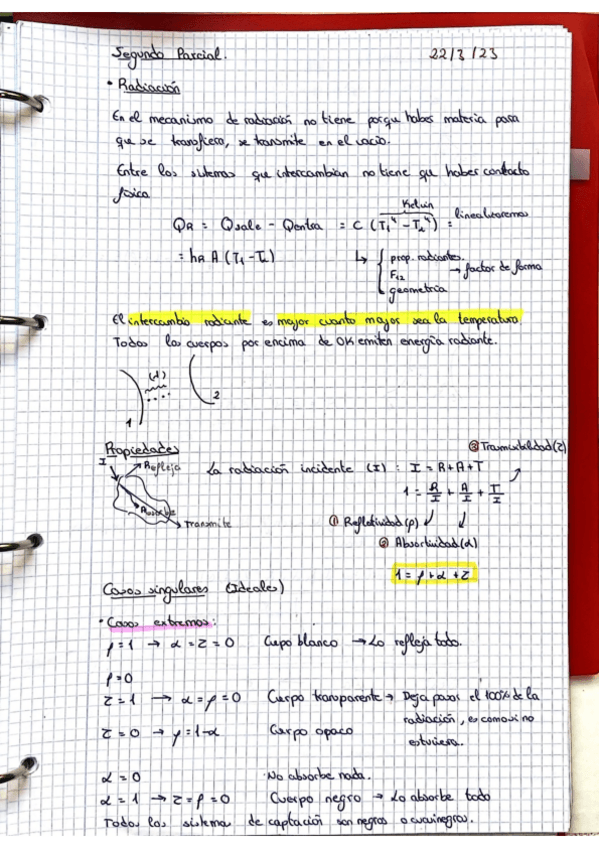 Segundo Parcial. 22/3/23
• Radiación
En el mecanismo de radiación no tiene porque haber materia para
que se transfiera, se transmite en el vacío.
Entre los sistemas que intercambian no tiene que haber contacto
física
Kelvin
QR = Qsale - Qentra = C (T₁⁴ - T₂⁴) = linealizaremos
= hR A (T₁ - T₂) ↳ { prop. radiantes.
F₁₂ → factor de forma
geometría
El intercambio radiante es mayor cuanto mayor sea la temperatura.
Todos los cuerpos por encima de 0K emiten energía radiante.
(λ)
1 2
Propiedades ③ Transmisibilidad (τ)
I Refleja La radiación incidente (I) : I = R + A + T
1 = R/I + A/I + T/I
Absorbe
Transmite ① Reflectividad (ρ)
② Absortividad (α)
1 = ρ + α + τ
Casos singulares (Ideales)
• Casos extremos:
ρ = 1 → α = τ = 0 Cuerpo blanco → Lo refleja todo.
ρ = 0
τ = 1 → α = ρ = 0 Cuerpo transparente → Deja pasar el 100% de la
radiación, es como si no
estuviera..
τ = 0 → ρ = 1 - α Cuerpo opaco
α = 0 No absorbe nada.
α = 1 → τ = ρ = 0 Cuerpo negro → Lo absorbe todo
Todos los sistema de captación son negros o cuasinegros.